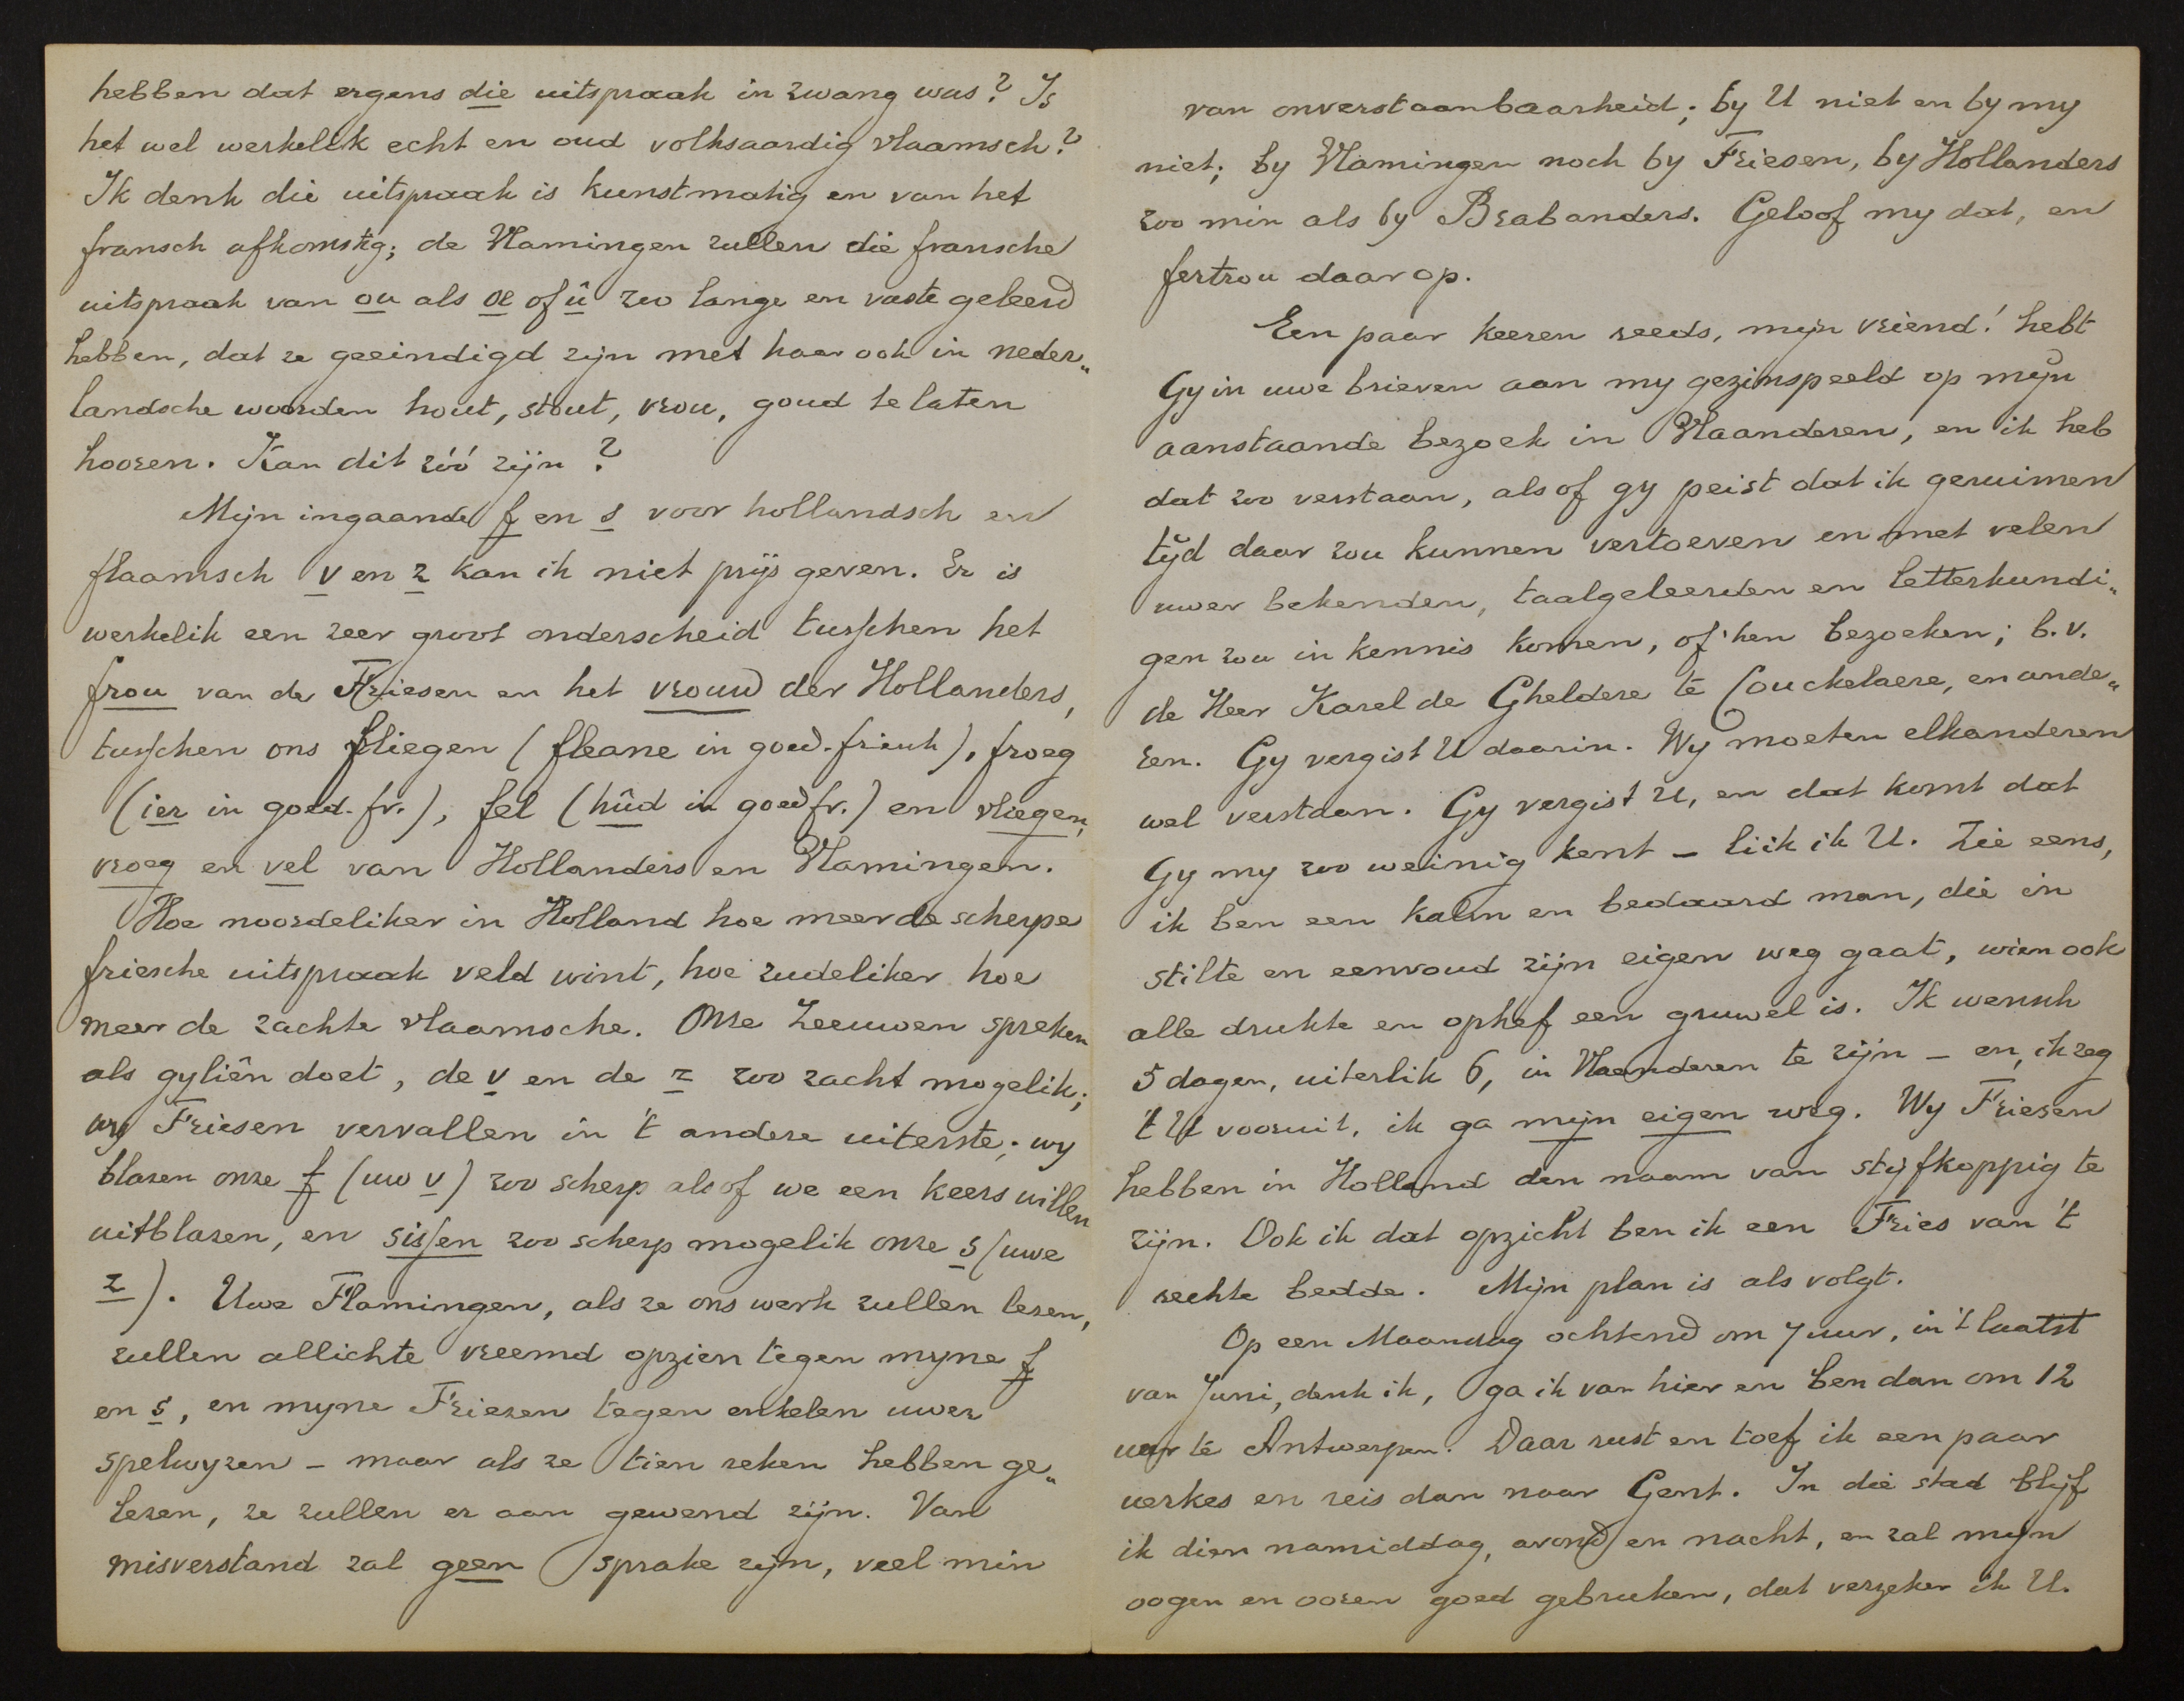 hebben dat ergens die uitspraak in zwang was? Is
het wel werkelik echt en oud volksaardig vlaamsch?
Ik denk die uitspraak is kunstmatig en van het
fransch afkomstig; de Vlamingen zullen die fransche
uitspraak van ou als oe of û zoo lange en vaste geleerd
hebben, dat ze geeindigd zijn met haar ook in neder„
landsche woorden hout, stout, vrou, goud te laten
hooren. Kan dit zóó zijn?
Mijn ingaande f en s voor hollandsch en
flaamsch v en z kan ik niet prijs geven. Er is
werkelik een zeer groot onderscheid tusschen het
frou van de Friesen en het vrouw der Hollanders,
tusschen ons fliegen (fleane in goed-friesch), froeg
(ier in goed-fr.), fel (hûd in goed fr.) en vliegen,
vroeg en vel van Hollanders en Vlamingen.
Hoe noordeliker in Holland hoe meer de scherpe
friesche uitspraak veld wint, hoe zudeliker hoe
meer de zachte vlaamsche. Onze Zeeuwen spreken
als gyliên doet, de v en de z zoo zacht mogelik;
wy Friesen vervallen in 't andere uiterste; wy
blazen onze f (uw v) zoo scherp alsof we een keers willen
uitblazen, en sissen zoo scherp mogelik onze s (uwe
z). Uwe Flamingen, als ze ons werk zullen lezen,
zullen allichte vreemd opzien tegen myne f
en s, en myne Friezen tegen enkelen uwer
spelwyzen – maar als ze tien reken hebben ge„
lezen, ze zullen er aan gewend zijn. Van
misverstand zal geen sprake zijn, veel min
van onverstaanbaarheid; by U niet en by my
niet; by Vlamingen noch by Friesen, by Hollanders
zoo min als by Brabanders. Geloof my dat, en
fertrou daar op.
Een paar keeren reeds, mijn vriend! hebt
Gy in uwe brieven aan my gezinspeeld op mijn
aanstaande bezoek in Vlaanderen, en ik heb
dat zoo verstaan, alsof gy peist dat ik geruimen
tijd daar zou kunnen vertoeven en met velen
uwer bekenden, taalgeleerden en letterkundi„
gen zou in kennis komen, of hen bezoeken; b.v.
de Heer Karel de Gheldere te Couckelaere, en ande„
ren. Gy vergist U daarin. Wy moeten elkanderen
wel verstaan. Gy vergist U, en dat komt dat
Gy my zoo weinig kent – liik ik U. Zie eens,
ik ben een kalm en bedaard man, die in
stilte en eenvoud zijn eigen weg gaat, wien ook
alle drukte en ophef een gruwel is. Ik wensch
5 dagen, uiterlik 6, in Vlaenderen te zijn – en, ik zeg
't U vooruit, ik ga mijn eigen weg. Wy Friezen
hebben in Holland den naam van stijfkoppig te
zijn. Ook ik dat opzicht ben ik een Fries van 't
rechte bedde. Mijn plan is als volgt.
Op een Maandag ochtend om 7 uur, in 't laatst
van Juni, denk ik, ga ik van hier en ben dan om 12
uur te Antwerpen. Daar rust en toef ik een paar
uerkes en reis dan naar Gent. In die stad blijf
ik dien namiddag, avond en nacht, en zal mijn
oogen en ooren goed gebruken, dat verzeker ik U.